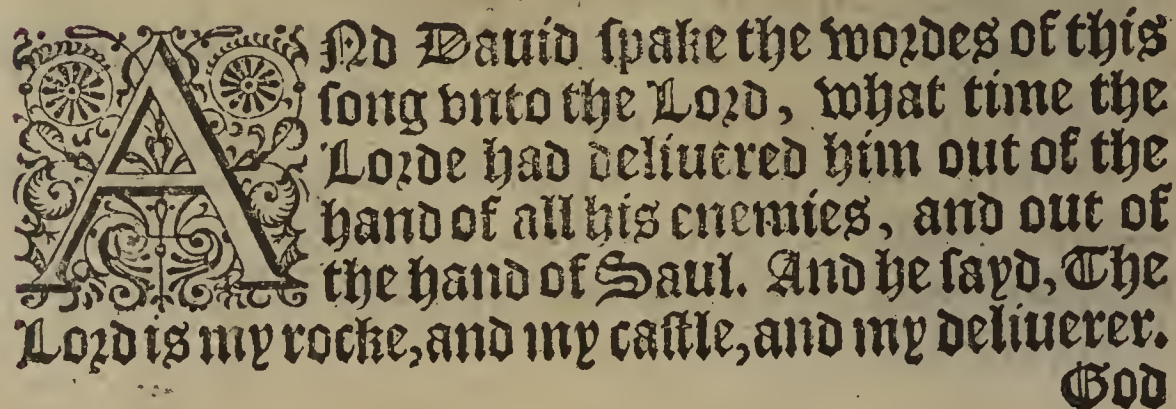 ANd Dauid ſpake the wordes of this
ſong vnto the Lord, what time the
Lorde had deliuered him out of the
hand of all his enemies, and out of
the hand of Saul. And he ſayd, The
Lord is my rocke, and my caſtle, and my deliuerer.
God